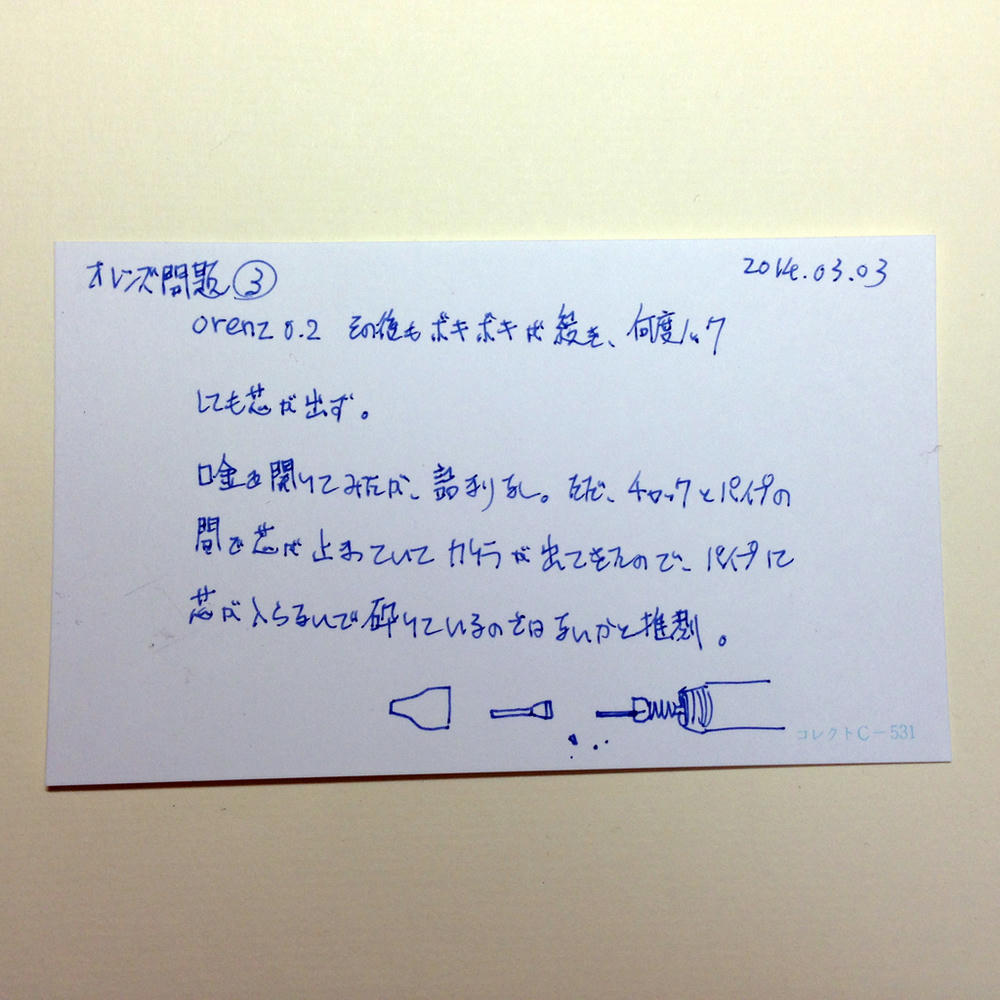 オレンズ問題③
2014.03.03
orenz 0.2 その後もボキボキが続き、何度ノック
しても芯が出ず。
口金を開けてみたが、詰まりなし。ただ、チャックとパイプの
間で芯が止まっていてカケラが出てきたので、パイプに
芯が入らないで砕けているのではないかと推測。
コレクトC-531